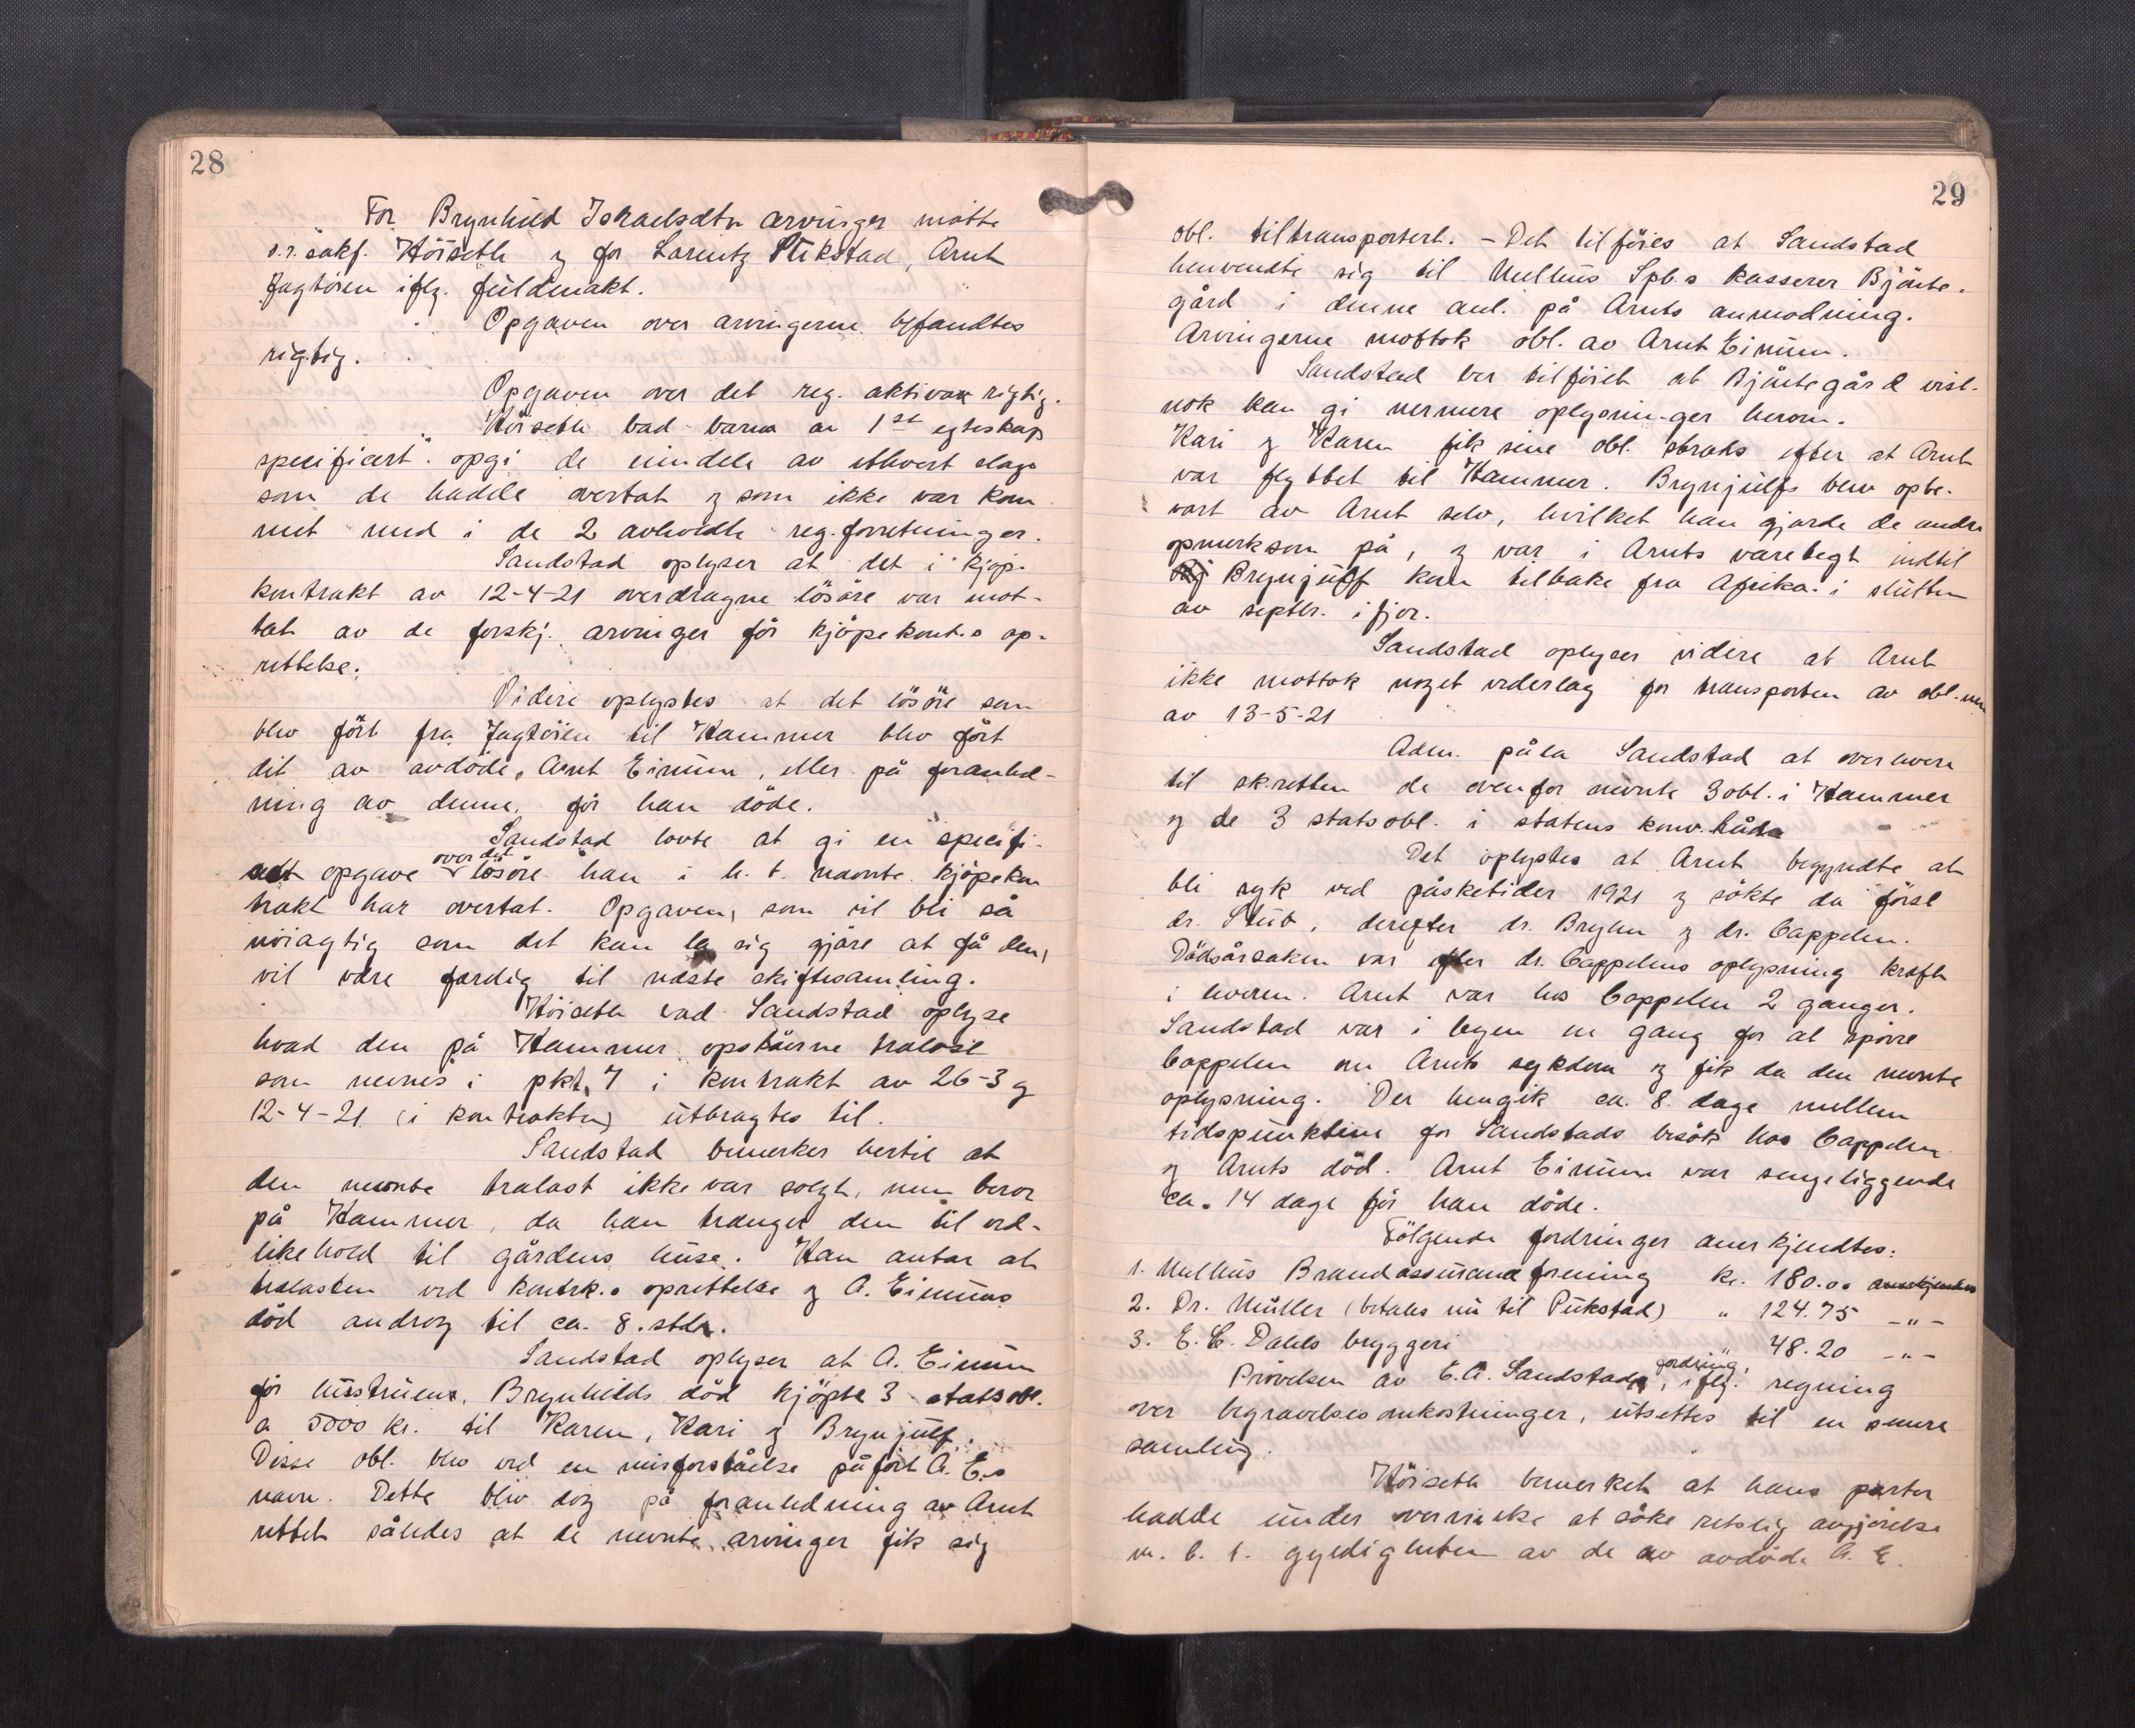 28
For Brynhild Israelsdtr arvinger møtte
o.r. sakf. Höiseth og for Lorentz Pükstad, Arnt
Jagtöien iflg. füldmakt.
Opgaven over arvingerne befandtes
rigtig.
Opgaven over det reg. aktiva rigtig.
Höiseth bad barna av 1st egteskap
specificert opgi de eiendele av ethvert slags
som de hadde overtat og som ikke var kom
met med i de 2 avholdte reg.forretninger.
Sandstad oplyser at det i kjøp-
kontrakt av 12-4-21 overdragne lösöre var mot-
tat av de forskj. arvinger før kjøpekont.s op-
rettelse.
Videre oplystes at det lösöre som
blev fört fra Jagtöien til Hammer blev fört
dit av avdöde, Arnt Eimüm, eller på foranled-
ning av denne, før han döde.
Sandstad lovte at gi en specifi-
cert opgave over det lösöre han i h. t. nævnte kjøpekon
trakt har overtat. Opgaven, som vil bli så
nöiagtig som det kan la sig gjöre at få den,
vil være færdig til næste skiftesamling.
Höiseth bad Sandstad oplyse
hvad den på Hammer opståerne trælast
som nevnes i pkt. 7 i kontrakt av 26-3 og
12-4-21 (i kontrakten) utbragtes til.
Sandstad bemerker hertil at
den nevnte trælast ikke var solgt, men beror
på Hammer, da han trænger den til ved-
likehold til gårdens hüse. Han antar at
trelasten ved kontrk.s oprettelse og A. Eimüms
död androg til ca. 8. stdr.
Sandstad oplyser at A. Eimüm
før hüstrüens, Brynhilds död kjöpte 3 statsobl.
a 5000 kr. til Karen, Kari og Brynjülf.
Disse obl. blev ved en misforståelse påfört A. E.s
navn. Dette blev dog på foranledning av Arnt
rettet således at de nevnte arvinger fik sig
29
obl. tiltransportert. - Det tilföies at Sandstad
henvendte sig til Melhüs Spb.s kasserer Bjärte-
gård i denne anl. på Arnts anmodning.
Arvingerne mottok obl. av Arnt Eimüm.
Sandstad ber tilföiet at Bjärtegård vist-
nok kan gi nermere oplysninger herom.
Kari og Karen fik sine obl. straks efter at Arnt
var flyttet til Hammer. Brynjülfs blev opbe-
vart av Arnt selv, hvilket han gjorde de andre
opmerksom på, og var i Arnts varetegt indtil
Brynjülf kom tilbake fra Afrika i slütten
av septbr. i fjor.
Sandstad oplyser videre at Arnt
ikke mottok noget vederlag for transporten av obl.nene
av 13-5-21
Adm. påla Sandstad at overlevere
til sk.retten de ovenfor nevnte 3 obl. i Hammer
og de 3 statsobl. i statens konv. håda
Det oplystes at Arnt begyndte at
bli syk ved påsketider 1921 og sökte da først
dr. Stüb, derefter dr. Bryhn og dr. Cappelen.
Dödsårsaken var efter dr. Cappelens oplysning kræft
i leveren. Arnt var hos Cappelen 2 ganger.
Sandstad var i byen en gang for at spörre
Cappelen om Arnts sykdom og fik da den nevnte
oplysning. Der hengik ca. 8. dage mellem
tidspünktene for Sandstads besök hos Cappelen
og Arnts död. Arnt Eimüm var sengeliggende
ca. 14 dage før han döde.
Fölgende fordringer anerkjendtes:
1. Melhüs Brandassüranceforening kr. 180.00 anerkjendes
2. Dr. Müller (betales nü til Pükstad) " 124.75 -"-
3. E. C. Dahls bryggeri " 48.20 -"-
Prövelsen av E. A. Sandstads fordring, iflg. regning
over begravelsesomkostninger, ütsettes til en senere
samling.
Höiseth bemerket at hans parter
hadde ünder overveielse at söke retslig avgjörelse
m. h. t. gyldigheten av de av avdöde A. E.